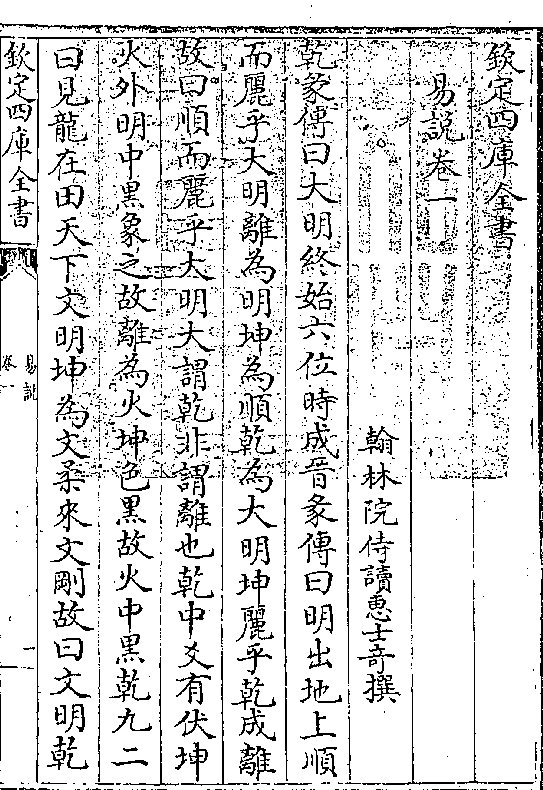 欽定四庫全書
易說卷一
翰林院侍讀惠士奇撰
乾彖傳曰大明終始六位時成晉彖傳曰明出地上順
而麗乎大明離為明坤為順乾為大明坤麗乎乾成離
故曰順而麗乎大明大謂乾非謂離也乾中爻有伏坤
火外明中黑象之故離為火坤色黑故火中黑乾九二
曰見龍在田天下文明坤為文柔來文剛故曰文明乾
欽定四庫全書
易說
卷一
一